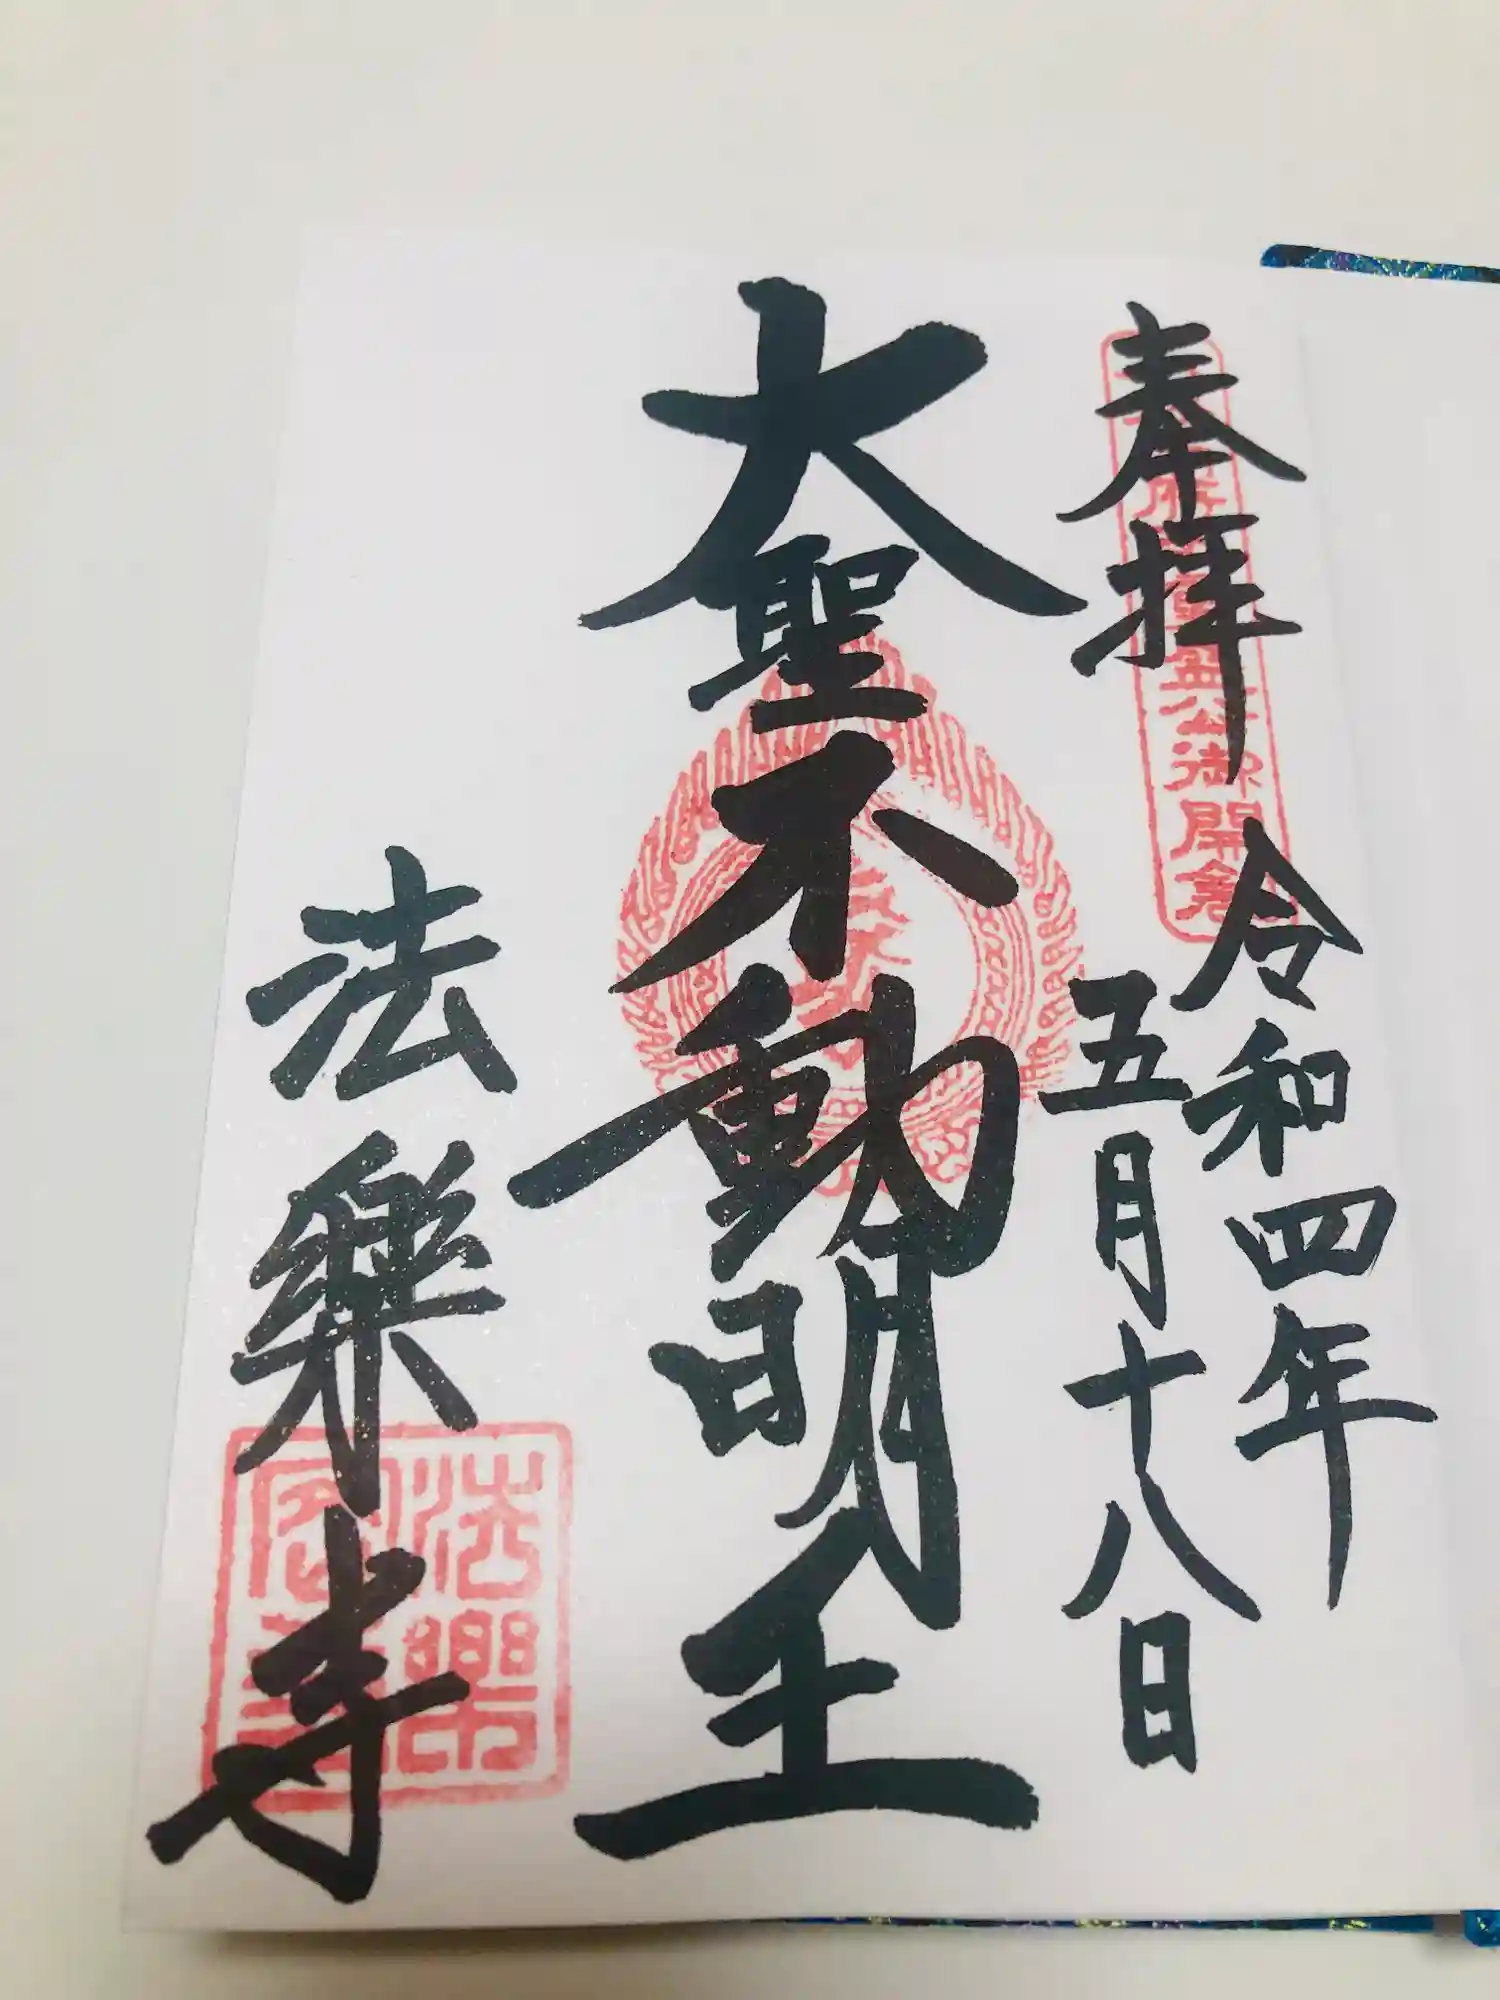 奉拝
令和四年
五月十八日
大聖不動明王
法樂寺